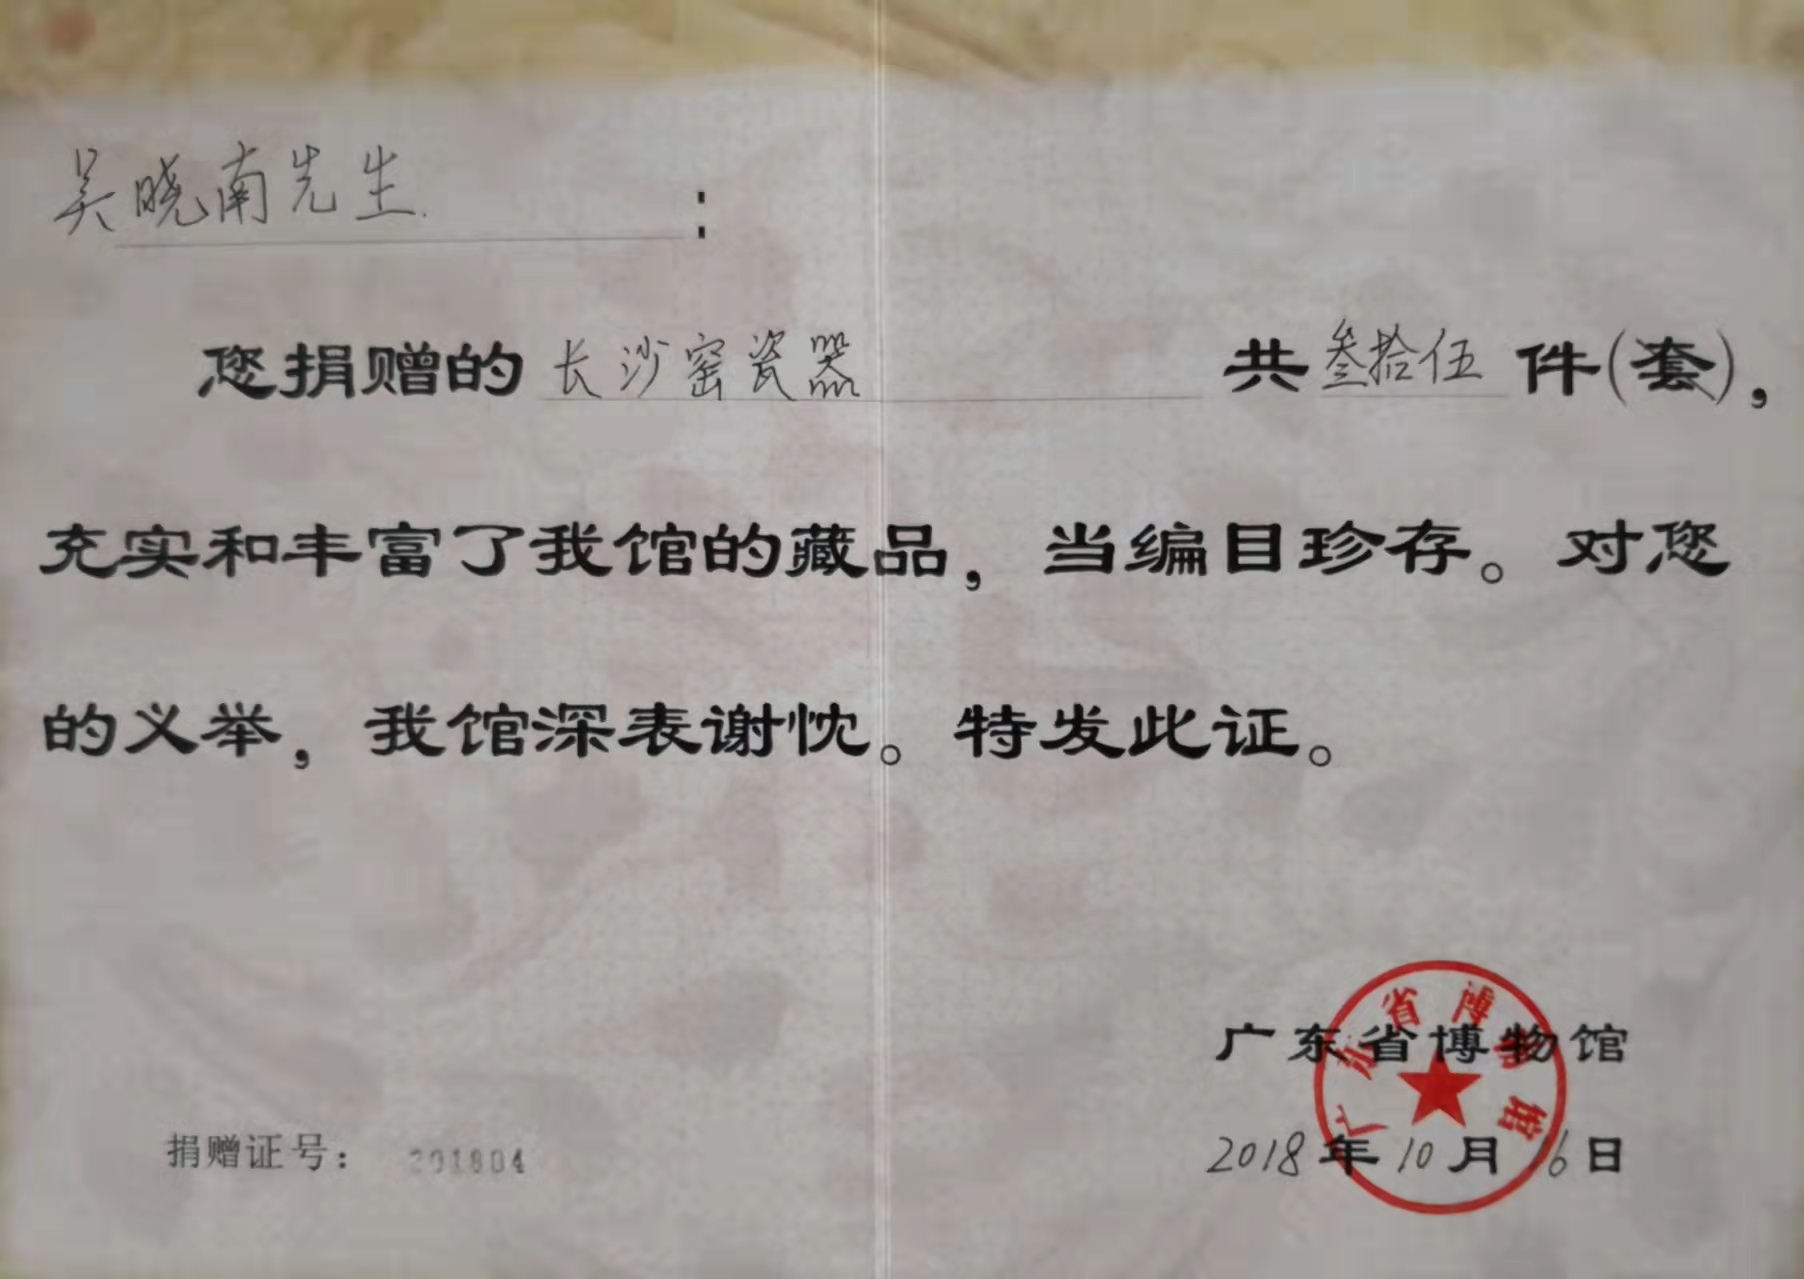 吴晓南先生:
您捐赠的长沙窑瓷器 共叁拾伍件(套),
充实和丰富了我馆的藏品,当编目珍存。对您
的义举,我馆深表谢忱。特发此证。
广东省博物馆
广东省博物馆
捐赠证号: 201804
2018年10月16日